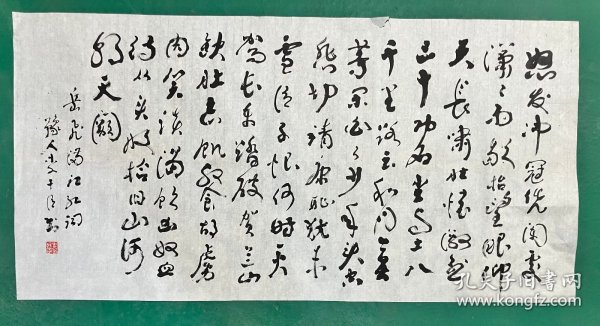 怒发冲冠凭阑处
潇潇雨歇抬望眼仰
天长啸壮怀激烈
三十功名尘与土八
千里路云和月莫
等闲白了少年头空
悲切靖康耻犹未
雪臣子恨何时灭
驾长车踏破贺兰山
缺壮志饥餐胡虏
肉笑谈渴饮匈奴血
待从头收拾旧山河
朝天阙
岳飞满江红词
豫人
孔夫子旧书网
www.kongfz.com